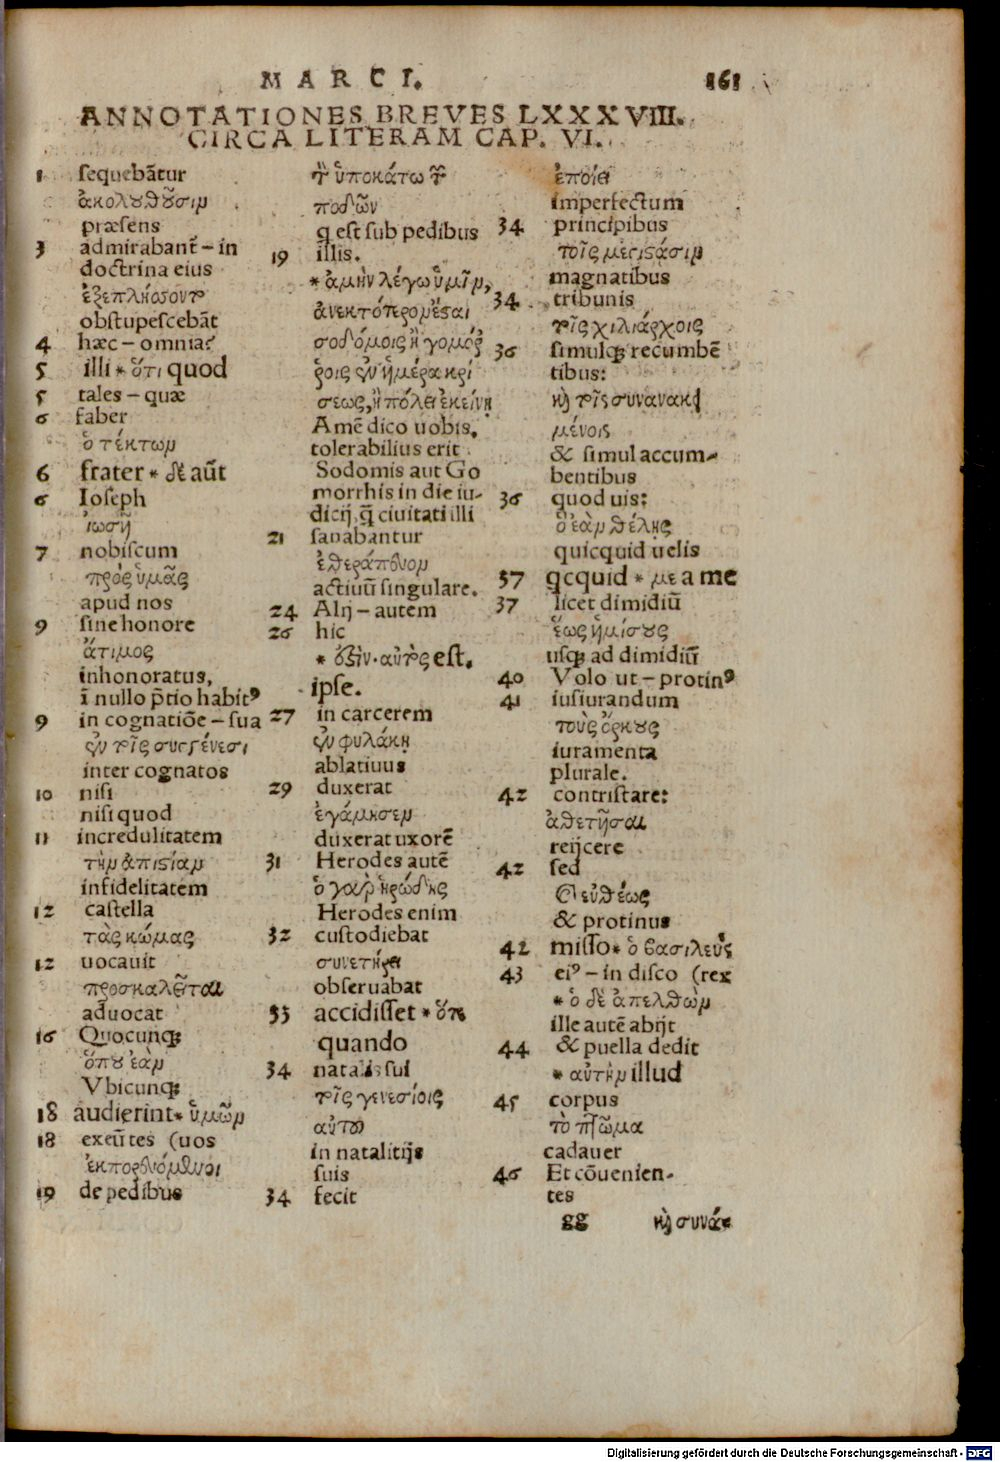 MARCI. 161
ANNOTATIONES BREVES LXXXVIII.
CIRCA LITERAM CAP. VI.
1 sequebãtur
ἀκολουθοῦσιν
præsens
3 admirabant̃ – in
doctrina eius
ἐξεπλήσσοντο
obstupescebãt
4 hæc – omnia?
5 illi * ὅτι quod
5 tales – quæ
6 faber
ὁ τέκτων
6 frater * δὲ aũt
6 Ioseph
ἰωσῆ
7 nobiscum
πρὸς ὑμᾶς
apud nos
9 sine honore
ἄτιμος
inhonoratus,
ĩ nullo p̃tio habitꝰ
9 in cognatiõe – sua
ἐν τοῖς συγγένεσι
inter cognatos
10 nisi
nisi quod
11 incredulitatem
τὴν ἀπιστίαν
infidelitatem
12 castella
τὰς κώμας
12 uocauit
προσκαλεῖται
aduocat
16 Quocunq;
ὅπου ἐὰν
Vbicunq;
18 audierint * ὑμῶν
18 exeũtes (uos
ἐκπορευόμενοι
19 de pedibus
τὸν ὑποκάτω τῶν
ποδῶν
q est sub pedibus
19 illis.
* ἀμὴν λέγω ὑμῖν,
ἀνεκτότερον ἔσται
σοδόμοις ἢ γομόρ
ροις ἐν ἡμέρα κρί
σεως, ἢ πόλει ἐκείνῃ
Amẽ dico uobis,
tolerabilius erit
Sodomis aut Go
morrhis in die iu-
dicij, q̃ ciuitati illi
21 sanabantur
ἐθεράπευον
actiuũ singulare.
24 Alij – autem
26 hic
* ἐστὶν. αὐτὸς est.
ipse.
27 in carcerem
ἐν φυλάκῃ
ablatiuus
29 duxerat
ἐγάμησεν
duxerat uxorẽ
31 Herodes autẽ
ὁ γὰρ ἡρώδης
Herodes enim
32 custodiebat
συνετήρει
obseruabat
33 accidisset * ὅτε
quando
34 natalis sui
τοῖς γενεσίοις
αὐτοῦ
in natalitijs
suis
34 fecit
ἐποίει
imperfectum
34 principibus
τοῖς μεγιστάσιν
magnatibus
34 tribunis
τοῖς χιλιάρχοις
36 simulq; recumbẽ
tibus:
καὶ τοῖς συνανακει
μένοις
& simul accum-
bentibus
36 quod uis:
ὃ ἐὰν θέλῃς
quicquid uelis
37 qcquid * με a me
37 licet dimidiũ
ἕως ἡμίσους
usq; ad dimidiũ
40 Volo ut – protinꝰ
41 iusiurandum
τοὺς ὅρκους
iuramenta
plurale.
42 contristare:
ἀθετῆσαι
reijcere
42 sed
Et εὐθέως
& protinus
42 misso * ὁ βασιλεὺς
43 eiꝰ – in disco (rex
* ὁ δὲ ἀπελθὼν
ille autẽ abijt
44 & puella dedit
* αὐτὴν illud
45 corpus
τὸ πτῶμα
cadauer
46 Et cõuenien-
tes
gg καὶ συνά-
Digitalisierung gefördert durch die Deutsche Forschungsgemeinschaft - DFG